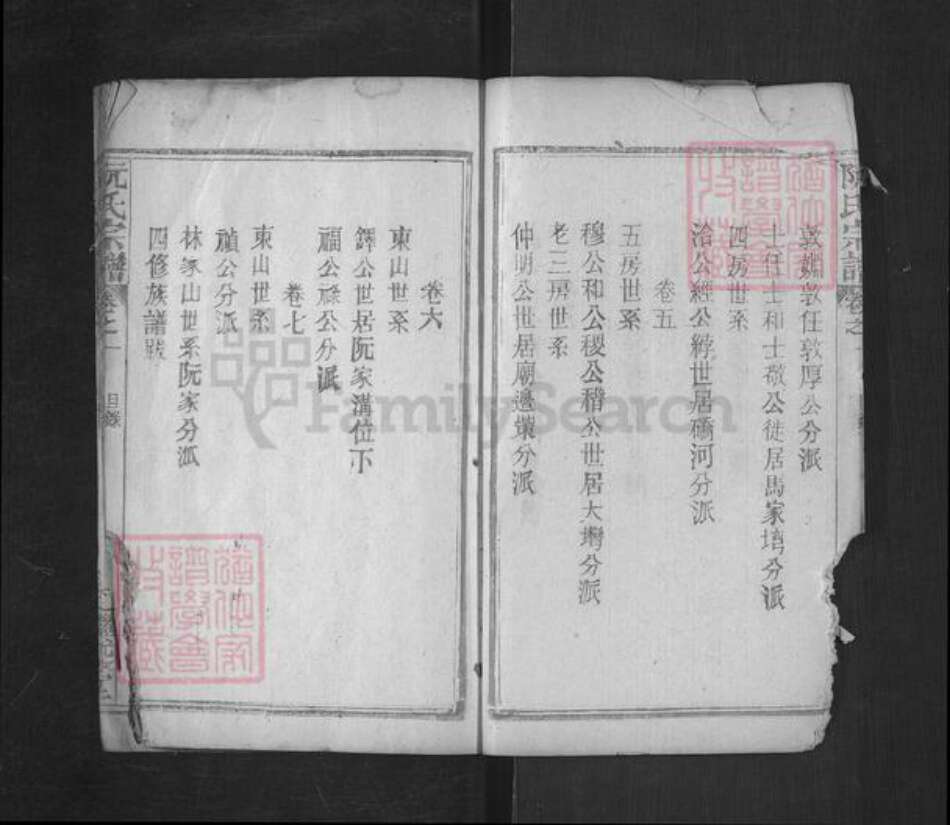 阮氏宗譜
卷之一
敦嫺敦任敦厚公分派
士任士和士敬公徙居馬家塆分派
四房世系
洽公經公綍世居礄河分派
卷五
五房世系
穆公和公稷公稽公世居大塆分派
老三房世系
仲明公世居廟邊壪分派
卷六
東山世系
鐸公世居阮家溝位下
福公祿公分派
卷七
東山世系
禎公分派
林家山世系阮家分派
四修族譜跋
阮氏宗譜
卷之一
目錄
譜學會
收藏
譜學會
收藏
FamilySearch